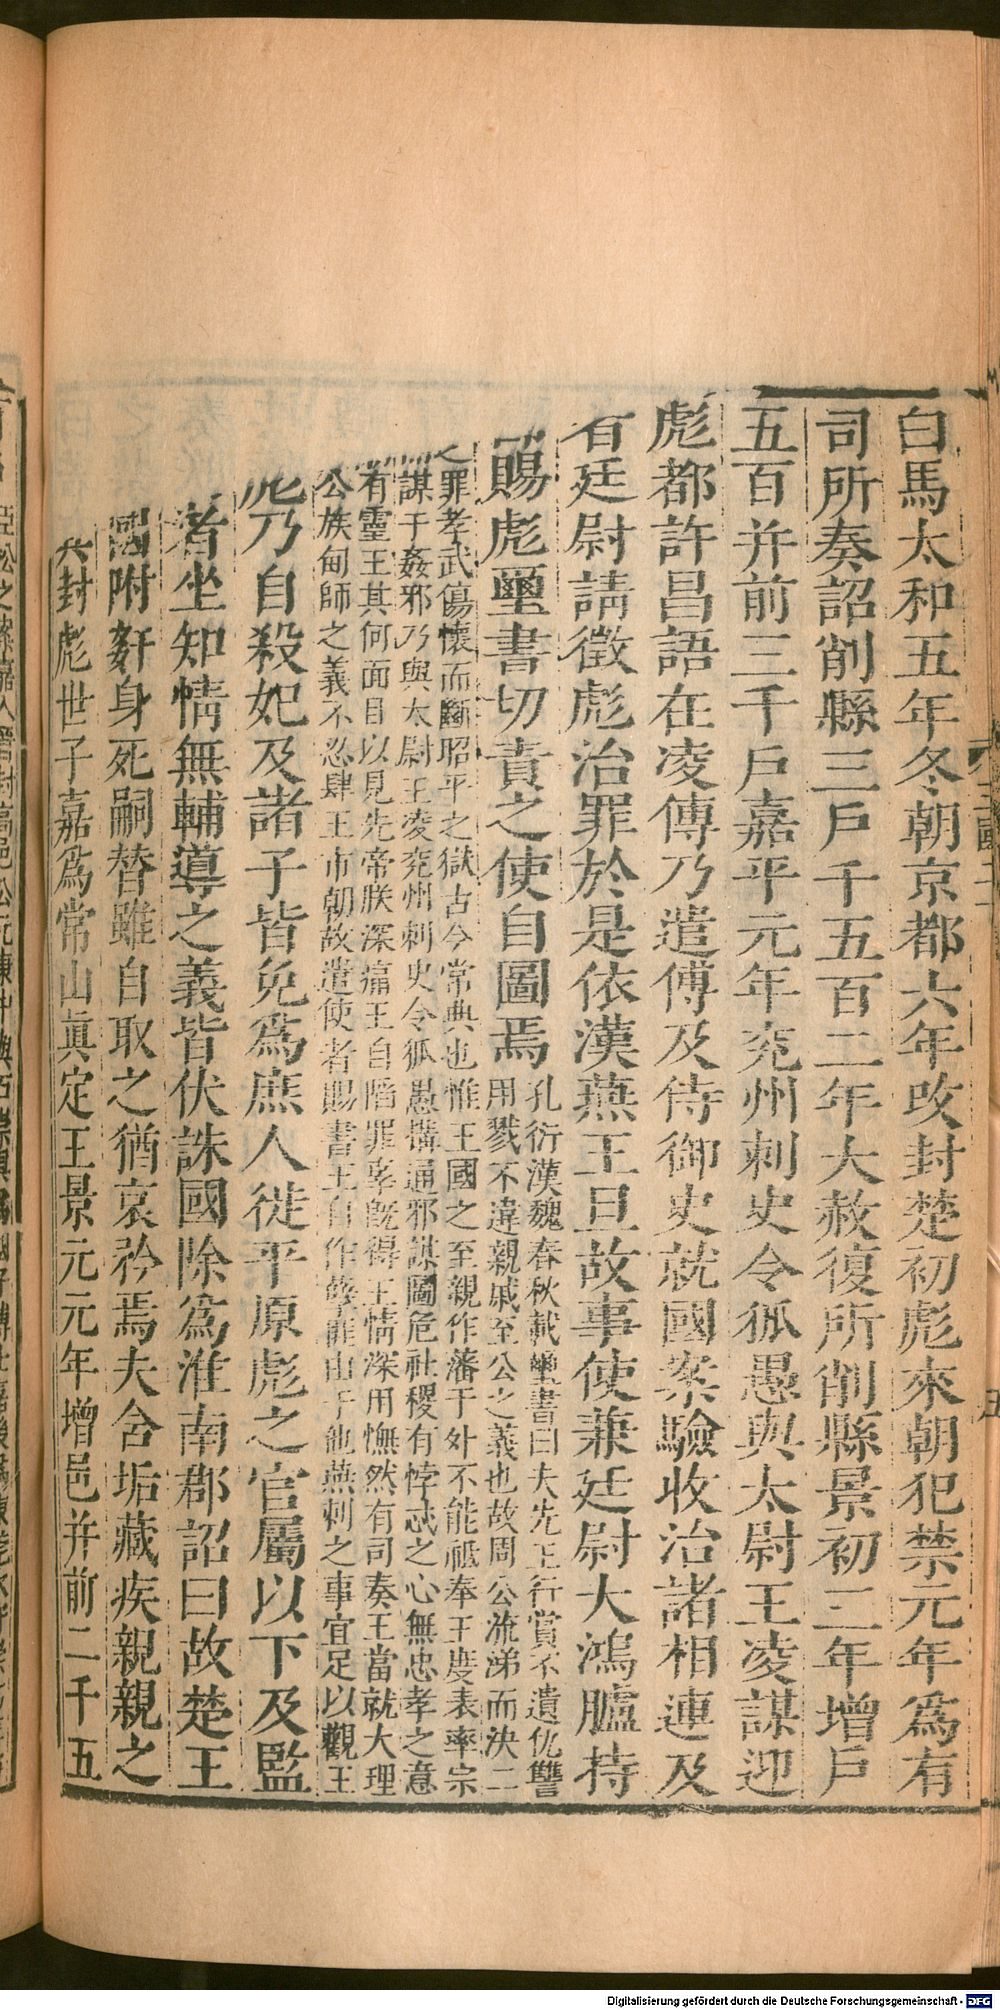 白馬太和五年冬朝京都六年改封楚初彪來朝犯禁元年爲有
司所奏詔削縣三戸千五百二年大赦復所削縣景初三年增戸
五百并前三千戸嘉平元年兖州刺史令狐愚與太尉王凌謀迎
彪都許昌語在凌傳乃遣傅及侍御史就國案驗收治諸相連及
者廷尉請徵彪治罪於是依漢燕王旦故事使兼廷尉大鴻臚持
賜彪璽書切責之使自圖焉
孔衍漢魏春秋載璽書曰夫先王行賞不遺仇讐
用戮不違親戚至公之義也故周公流涕而決二
之罪孝武傷懷而斷昭平之獄古今常典也惟王國之至親作藩于外不能祗奉王度表率宗
謀于姦邪乃與太尉王凌兖州刺史令狐愚搆通邪謀圖危社稷有悖忒之心無忠孝之意
有靈王其何面目以見先帝朕深痛王自陷罪辜既得王情深用憮然有司奏王當就大理
公族甸師之義不忍肆王市朝故遣使者賜書王自作孽匪由于他燕剌之事宜足以觀王
彪乃自殺妃及諸子皆免爲庶人徙平原彪之官屬以下及監
者坐知情無輔導之義皆伏誅國除爲淮南郡詔曰故楚王
國附姧身死嗣替雖自取之猶哀矜焉夫含垢藏疾親親之
封彪世子嘉爲常山眞定王景元元年增邑并前二千五
三國
五
Digitalisierung gefördert durch die Deutsche Forschungsgemeinschaft - DFG